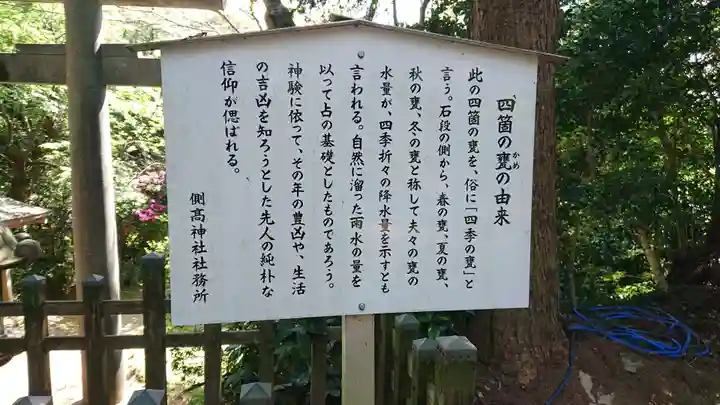 四箇の甕の由来
かめ
此の四箇の甕を、俗に「四季の甕」と
言う。石段の側から、春の甕、夏の甕、
秋の甕、冬の甕と称して夫々の甕の
水量が、四季折々の降水量を示すとも
言われる。自然に溜った雨水の量を
以って占の基礎としたものであろう。
神験に依って、その年の豊凶や、生活
の吉凶を知ろうとした先人の純朴な
信仰が偲ばれる。
側高神社社務所